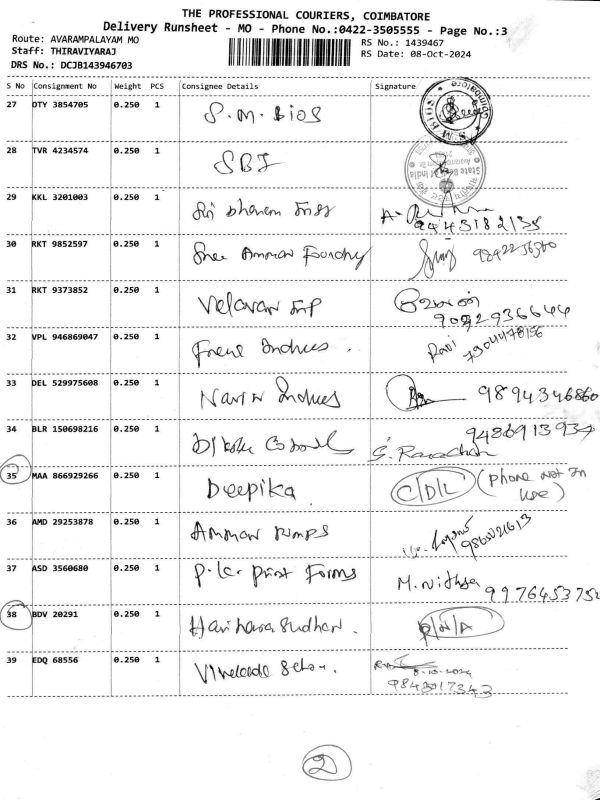 THE PROFESSIONAL COURIERS, COIMBATORE
Delivery Runsheet - MO - Phone No.:0422-3505555 - Page No.:3
Route: AVARAMPALAYAM MO
RS No.: 1439467
Staff: THIRAVIYARAJ
RS Date: 08-Oct-2024
DRS No.: DCJB143946703
S No Consignment No Weight PCS Consignee Details Signature
27 OTY 3854705 0.250 1 S.M. BIOS
28 TVR 4234574 0.250 1 SBI
State Bank of India
29 KKL 3201003 0.250 1 Sri
9443182135
30 RKT 9852597 0.250 1 Shree Amman Foundry
31 RKT 9373852 0.250 1 Velavan வேலன்
9092936644
32 VPL 946869047 0.250 1 Ravi
7904478156
33 DEL 529975608 0.250 1 Navin 9894346860
34 BLR 150698216 0.250 1 9486913934
35 MAA 866929266 0.250 1 Deepika C/D/L (phone not in
use)
36 AMD 29253878 0.250 1 Amman Pumps
37 ASD 3560680 0.250 1 P.K. Print Forms M. Nithya 9976453752
38 BDV 20291 0.250 1 Hariharasudhan.
39 EDQ 68556 0.250 1
8-10-2024
2